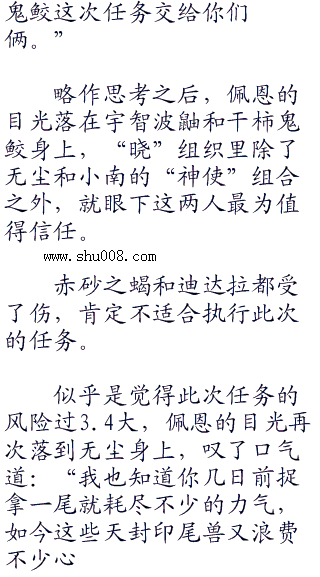 鬼鲛这次任务交给你们
俩。”
略作思考之后，佩恩的
目光落在宇智波鼬和干柿鬼
鲛身上，“晓”组织里除了
无尘和小南的“神使”组合
之外，就眼下这两人最为值
得信任。
www.shu008.com
赤砂之蝎和迪达拉都受
了伤，肯定不适合执行此次
的任务。
似乎是觉得此次任务的
风险过3.4大，佩恩的目光再
次落到无尘身上，叹了口气
道：“我也知道你几日前捉
拿一尾就耗尽不少的力气，
如今这些天封印尾兽又浪费
不少心